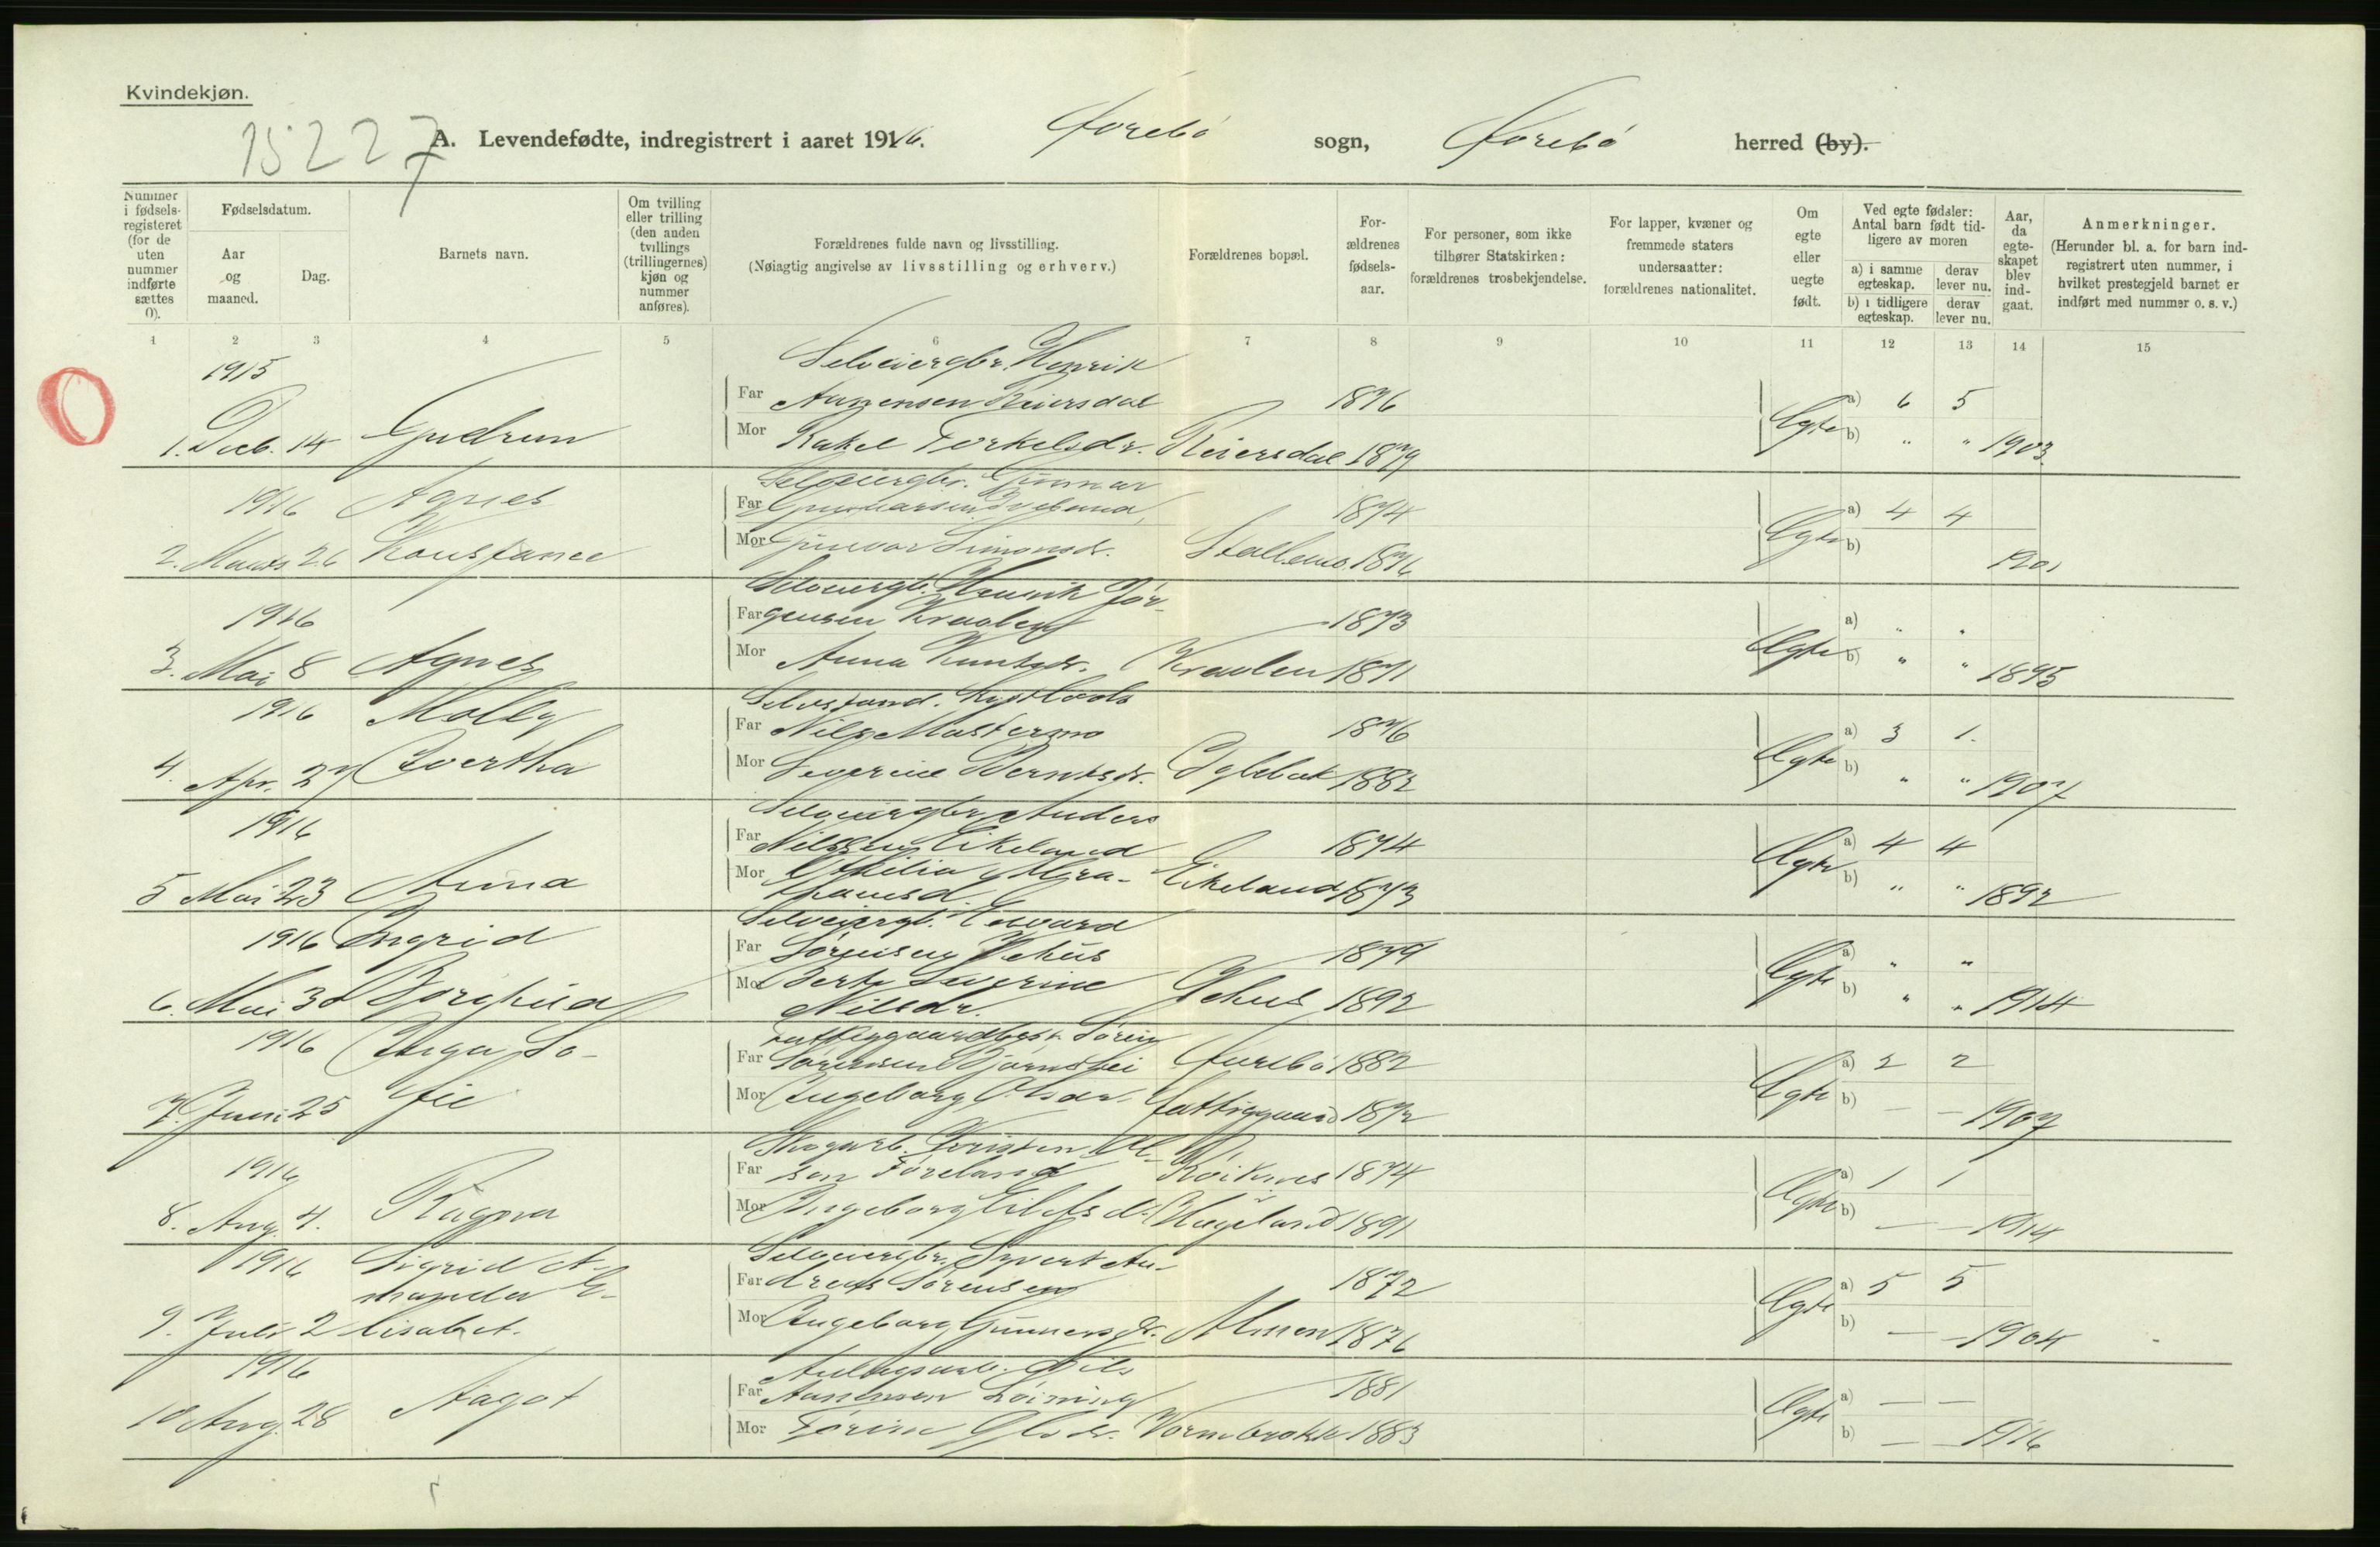 Kvindekjøn.
15227
A. Levendefødte, indregistrert i aaret 1916. sogn, herred (by).
Nummer i fødsels-registeret (for de uten nummer indførte sættes 0).
Fødselsdatum.
Aar og maaned.
Dag.
Barnets navn.
Om tvilling eller trilling (den anden tvillings (trillingernes) kjøn og nummer anføres).
Forældrenes fulde navn og livsstilling.
(Nøiagtig angivelse av livsstilling og erhverv.)
Forældrenes bopæl.
For-ældrenes fødsels-aar.
For personer, som ikke tilhører Statskirken: forældrenes trosbekjendelse.
For lapper, kvæner og fremmede staters undersaatter: forældrenes nationalitet.
Om egte eller uegte født.
Ved egte fødsler: Antal barn født tid-ligere av moren
a) i samme egteskap.
derav lever nu.
b) i tidligere egteskap.
derav lever nu.
Aar, da egte-skapet blev ind-gaat.
Anmerkninger.
(Herunder bl. a. for barn ind-registrert uten nummer, i hvilket prestegjeld barnet er indført med nummer o. s. v.)
1 2 3 4 5 6 7 8 9 10 11 12 13 14 15
1915 Selveiergbr. Henrik
Far Reiersdal 1876 a) 6 5
1. Deb. 14 Gudrun Mor Rakel Torkelsdr. Reiersdal 1879 Egte b) " " 1903
1916 Agnes Selveiergbr. Gunnar
Far 1874 a) 4 4
2. Marts 26 Konstance Mor Gunvor Simonsdr. 1876 Egte b) 1901
1916 Selveiergb. Henrik Jør-
Far gensen Kraalen 1873 a) " "
3. Mai 8 Agnes Mor Anna Knutsdr. Kraalen 1871 Egte b) " " 1895
1916 Molly
Far Nils 1876 a) 3 1.
4. Apr. 27 Bertha Mor Severine Berntsdr. 1882 Egte b) " " 1907
1916 Selveiergbr. Anders
Far Nilsen Eikeland 1874 a) 4 4
5 Mai 23 Anna Mor Otilia Abra-
hamsd. Eikeland 1873 Egte b) " " 1892
1916 Ingrid Selveiergb. Edvard
Far Sørensen Vehus 1879 a) " "
6. Mai 30 Borghild Mor Berte Severine
Nilsdr. Vehus 1892 Egte b) " " 1914
1916 Inga So- Fattiggaardbest. Søren
Far Sørensen 1882 a) 2 2
7. Juni 25 fie Mor Ingeborg Olsdr. Fattiggaard 1872 Egte b) — — 1907
1916 Skogarb. Kristen Ol-
Far sen 1874 a) 1 1
8. Aug. 4. Ragna Mor Ingeborg Eilefsd. Hægeland 1891 Egte b) — — 1914
1916 Sigrid A- Selveiergbr. Syvert An-
manda E- Far dreas Sørensen 1872 a) 5 5
9. Juli 2 lisabet. Mor Ingeborg Gunnersdr. 1876 Egte b) — — 1904
1916 Anlægsarb. Nils
Far Aanensen 1881 a) — —
10 Aug. 28 Aagot Mor Olsdr. 1883 Egte b) — — 1916